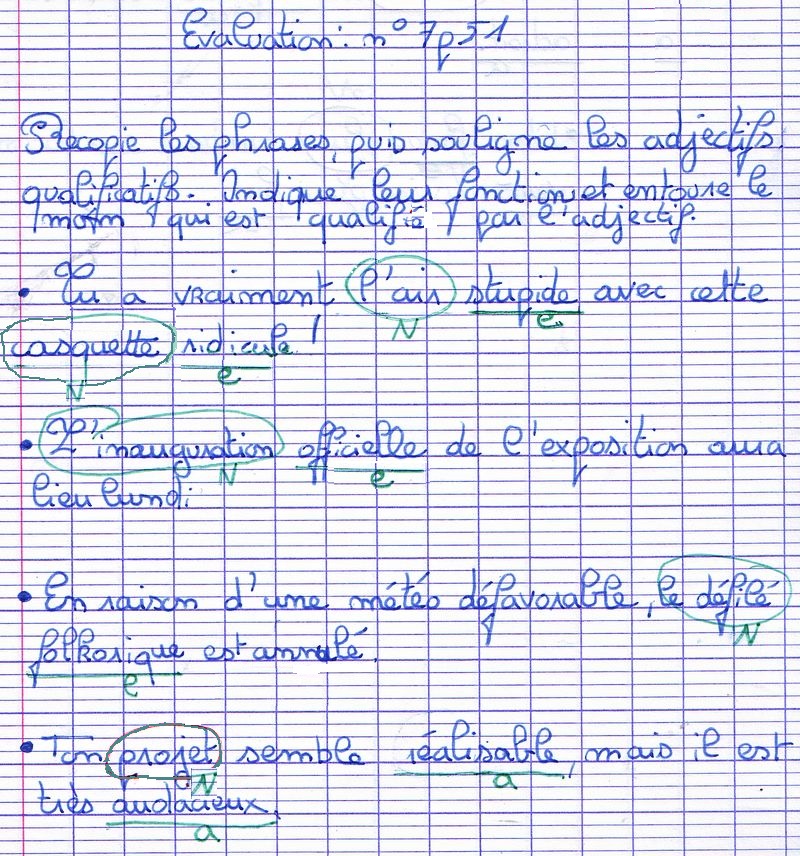 Evaluation: n° 7p51
Recopie les phrases, puis souligne les adjectifs
qualificatifs. Indique leur fonction et entoure le
nom qui est qualifié par l'adjectif.
• Tu a vraiment l'air stupide avec cette
N e
casquette ridicule !
N e
• L'inauguration officielle de l'exposition aura
N e
lieu lundi.
• En raison d'une météo défavorable, le défilé
N
folkorique est annulé.
e
• Ton projet semble réalisable, mais il est
N a
très audacieux.
a